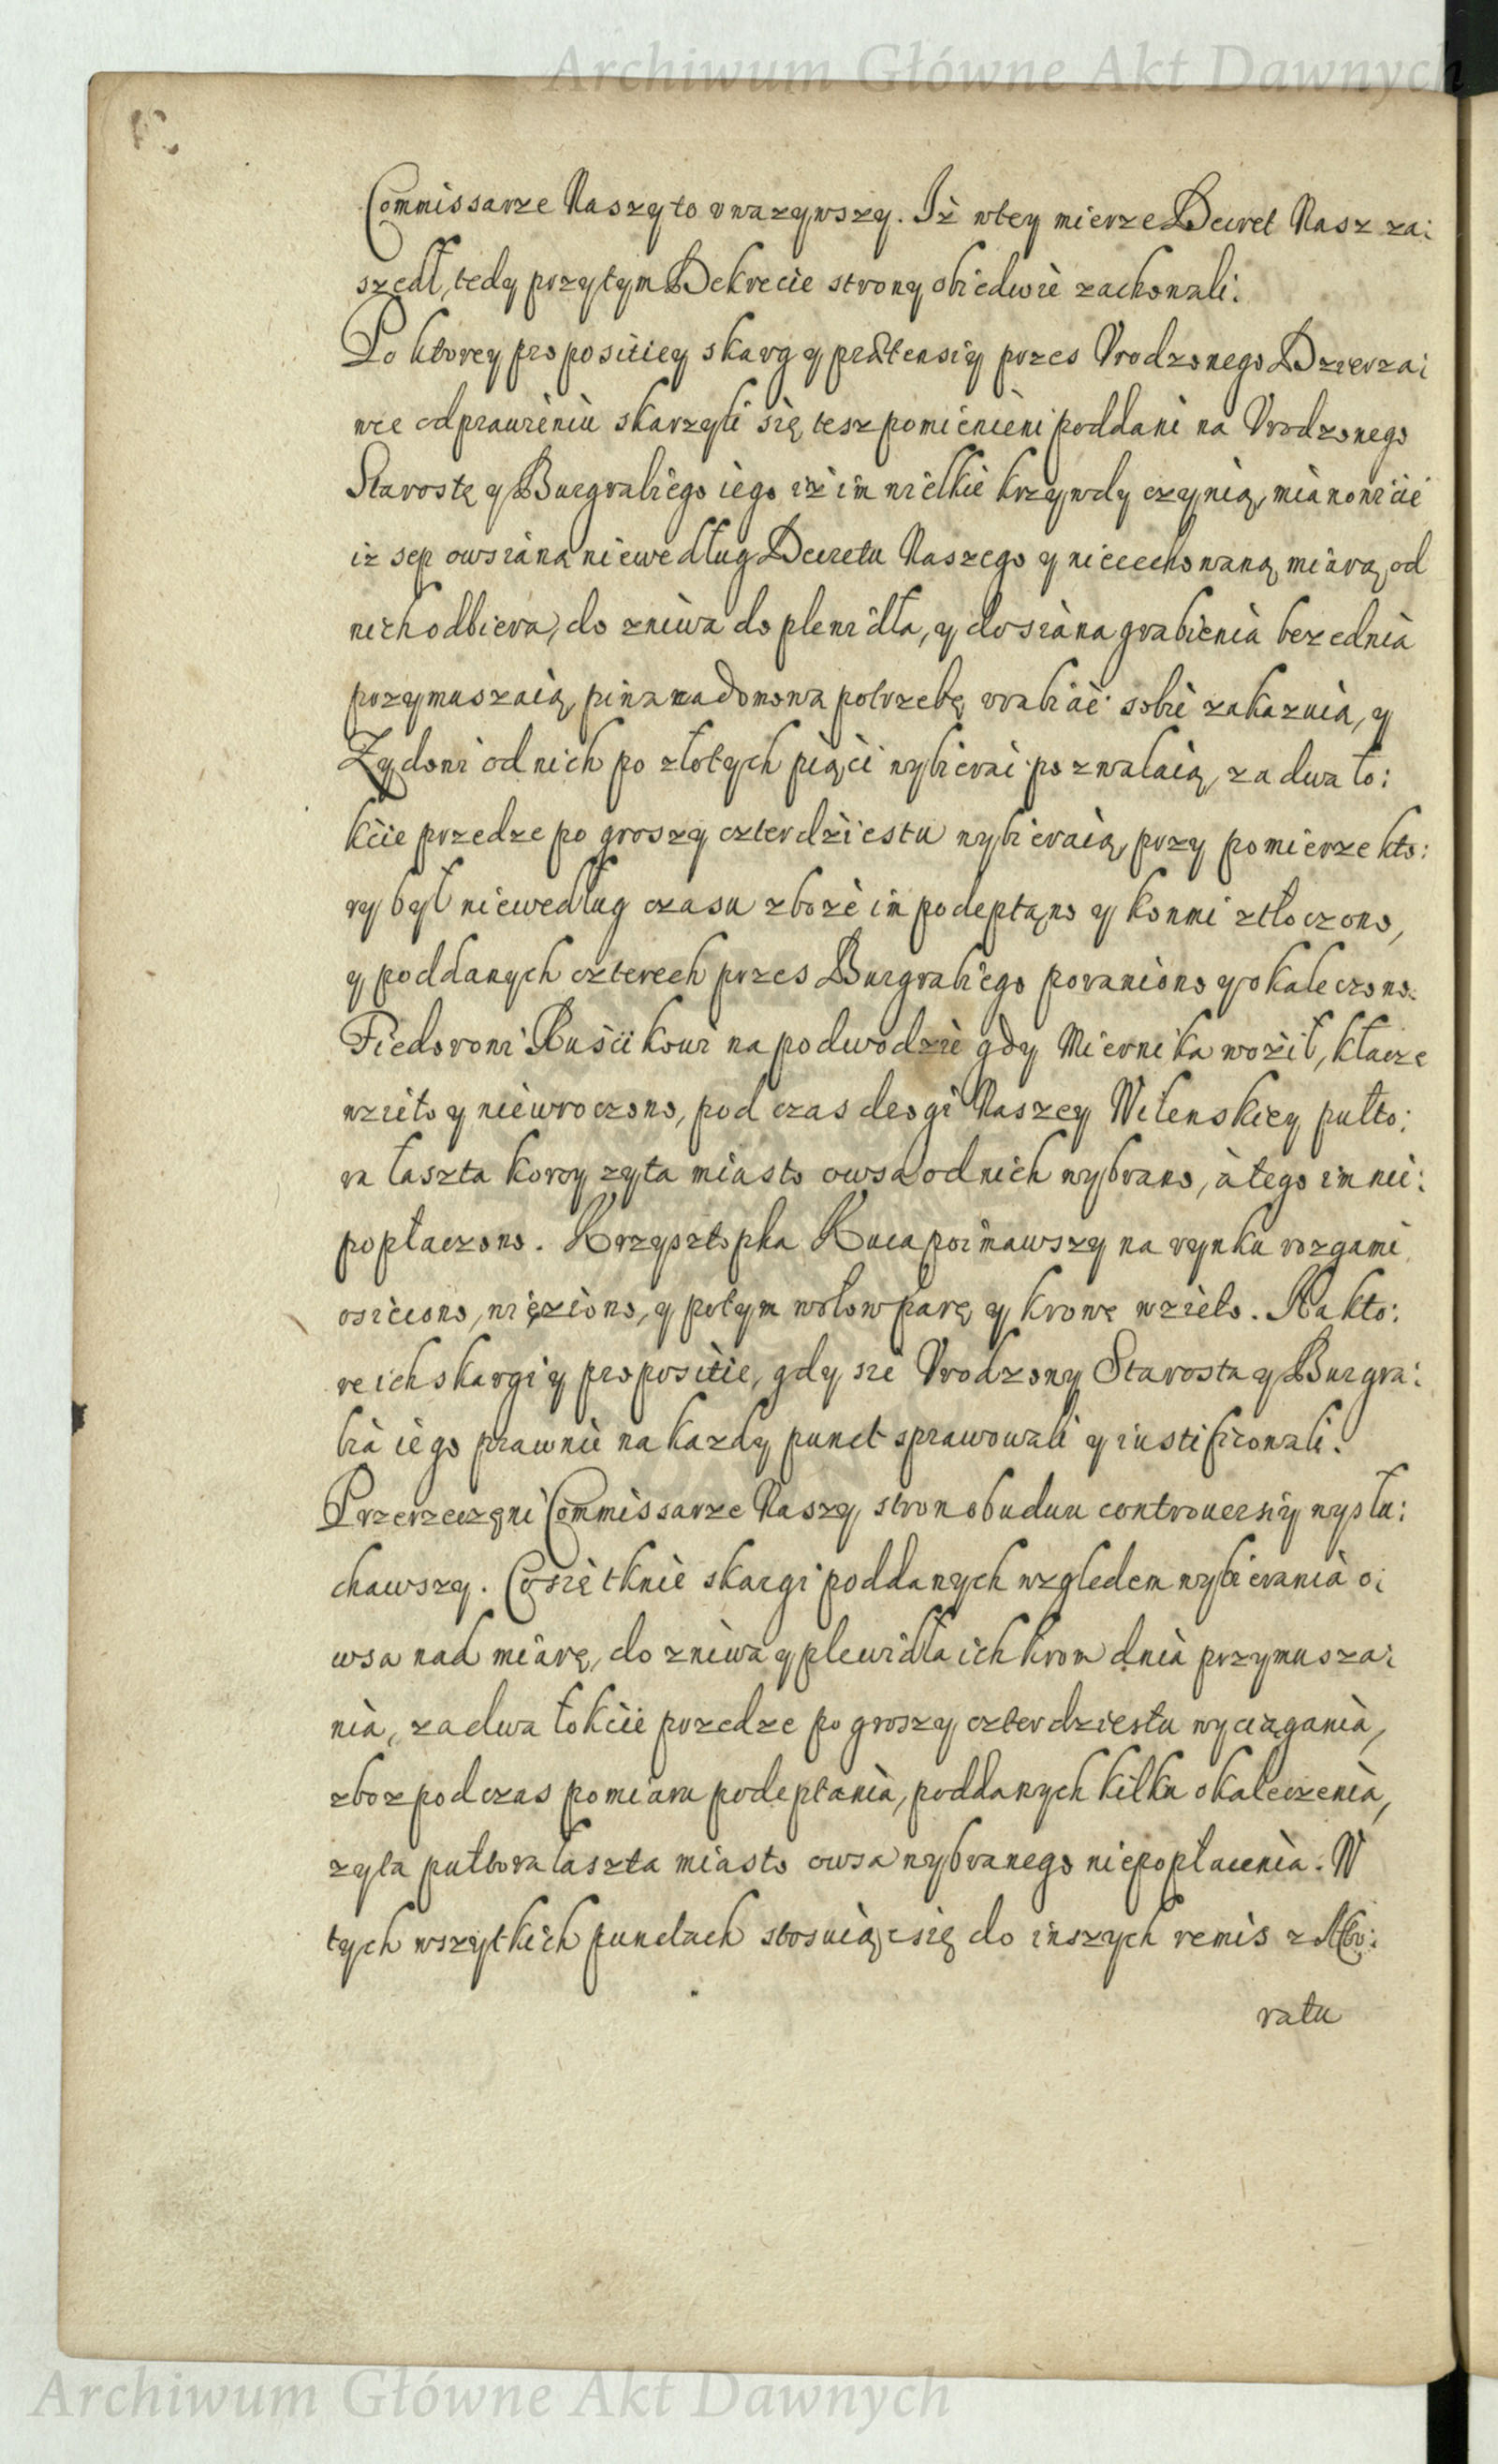 Archiwum Główne Akt Dawnych
Commissarze Naszy to uwazywszy. Iż wtey mierze Decret Nasz za:
szedł, tedy przytym Dekrecie strony obiedwie zachowali.
Po ktorey propositiey skarg y praetensiy przes Vrodzonego Dzierza:
wce odprawieniu skarzyli się tesz pomienieni poddani na Vrodzonego
Starostę y Burgrabiego iego iż im wielkie krzywdy czynią, mianowicie
iz sep owsiana niewedług Decretu Naszego y niecechowaną miarą od
nich odbiera, do zniwa do plewidła, y do siana grabienia beze dnia
przymuszaią, piwa na domowa potrzebę vrabiać sobie zakazuią, y
Zydowi od nich po złotych piąci wybierać pozwalaią, za dwa ło:
kcie przedze po groszy czterdziestu wybieraią, przy pomierze kto:
ry był niewedług czasu zboże im podeptano y konmi ztłoczono,
y poddanych czterech przes Burgrabiego poraniono y okaleczono.
Fiedorowi Rusiikowi na podwodzie gdy Miernika woził, kłacze
wzieto y niewroczono, pod czas drogi Naszey Wilenskiey pułto:
ra łaszta korcy zyta miasto owsa od nich wybrano, à tego im nie:
popłaczono. Krzysztopha Kuca poimawszy na rynku rozgami
osieciono, więziono, y potym wołow parę y krowę wzieło. Na kto:
re ich skargi y propositie, gdy sie Vrodzony Starosta y Burgra:
bia iego prawnie na kazdy punct sprawowali y iustificowali.
Przerzeczeni Commissarze Naszy, stron obudwu controuersiy wysłu:
chawszy. Co się tknie skargi poddanych względem wybierania o:
wsa nad miarę, do zniwa y plewidła ich krom dnia przymusza:
nia, za dwa łokcie przedze po groszy czterdziestu wyciągania,
zboz podczas pomiaru podeptania, poddanych kilku okaleczenia,
zyta pułtora łaszta miasto owsa wybranego niepopłacenia. W
tych wszytkich punctach stosuiąc się do inszych remis z
ratu
Archiwum Główne Akt Dawnych